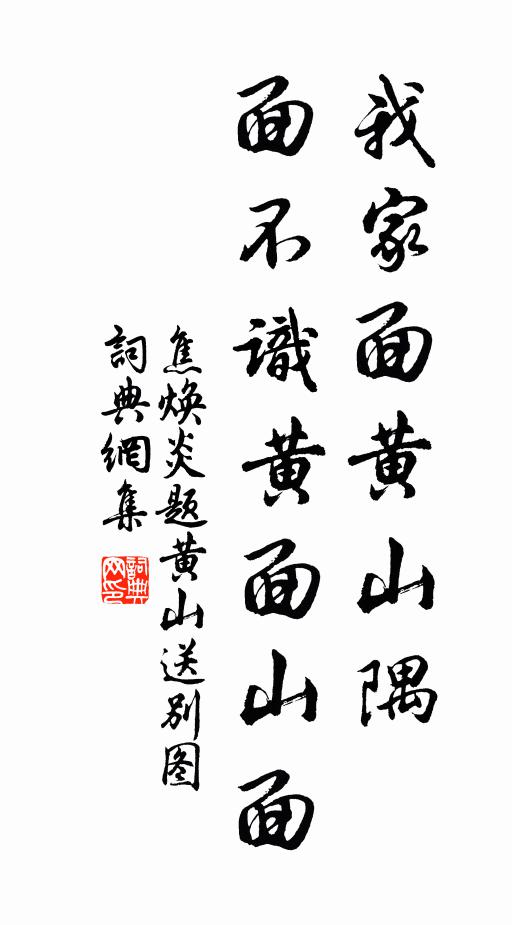 我家面黄山隅
面不識黄面山面
焦焕炎题黄山送别图
詞典網集
詞典网印